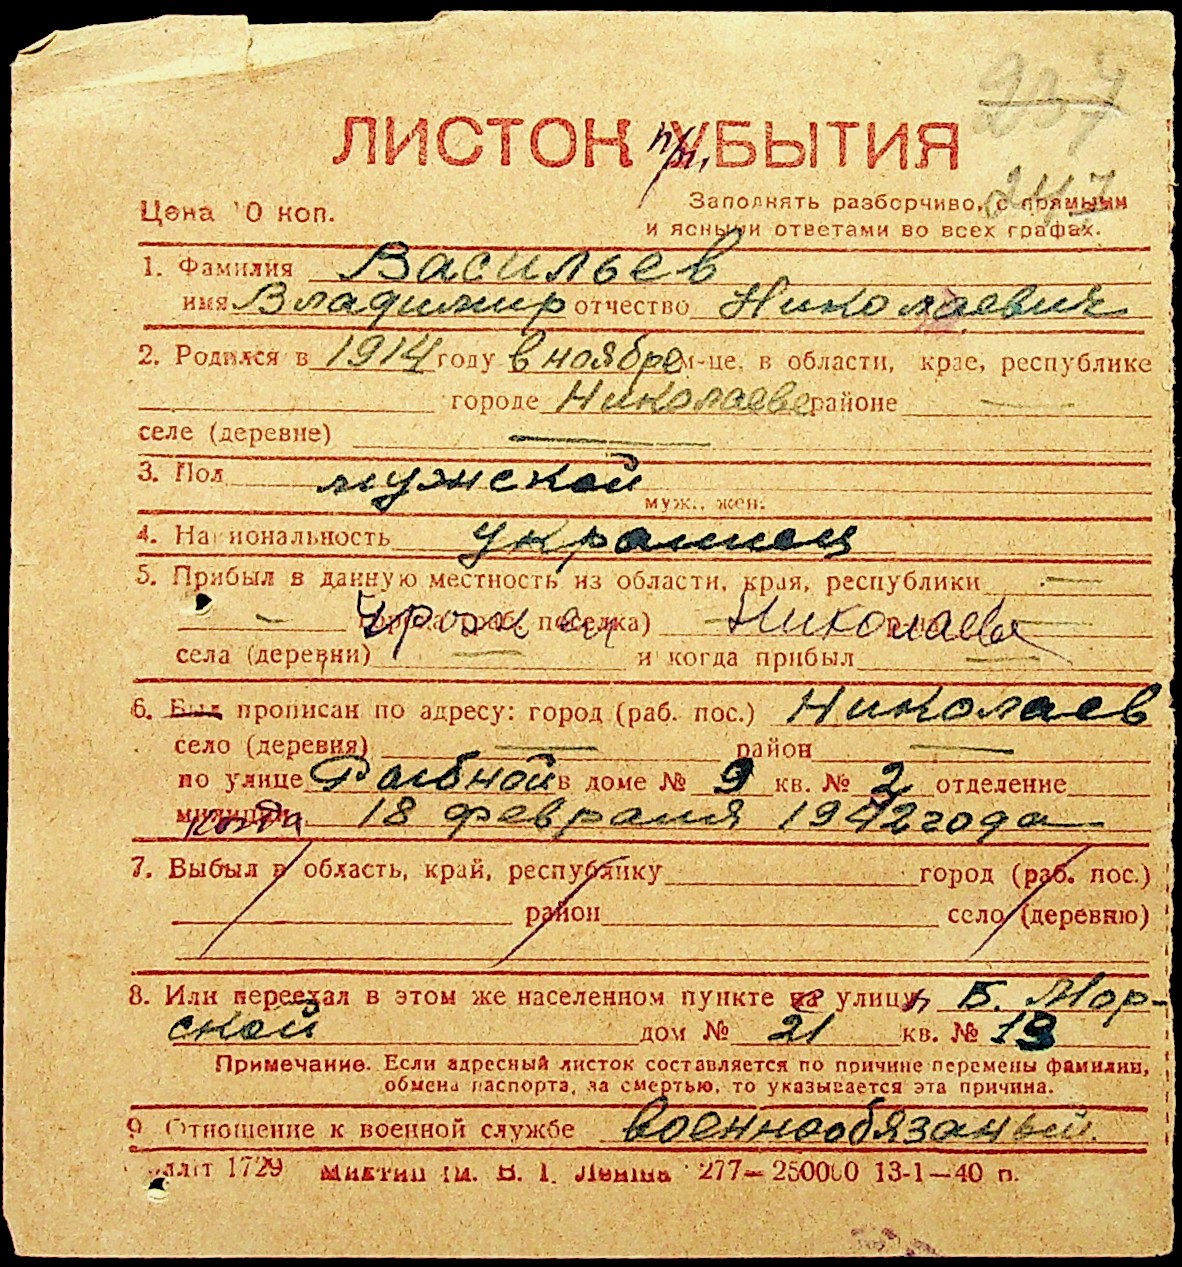 237
ЛИСТОК УБЫТИЯ
пр
247
Цена 10 коп.
Заполнять разборчиво, с прямыми
и ясными ответами во всех графах.
1. Фамилия Васильев
имя Владимир отчество Николаевич
2. Родился в 1914 году в ноябре м-це, в области, крае, республике
городе Николаеве районе —
селе (деревне) —
3. Пол мужской
муж., жен.
4. Национальность украинец
5. Прибыл в данную местность из области, края, республики —
— города (раб. поселка) Урожен ец Николаева
села (деревни) — и когда прибыл —
6. Был прописан по адресу: город (раб. пос.) Николаев
село (деревня) — район —
по улице в доме № 9 кв. № 2 отделение
милиции когда 18 февраля 1942 года
7. Выбыл в область, край, республику город (раб. пос.)
район село (деревню)
8. Или переехал в этом же населенном пункте на улицу Б. Мор-
ской дом № 21 кв. № 13
Примечание. Если адресный листок составляется по причине перемены фамилии,
обмена паспорта, за смертью, то указывается эта причина.
9 Отношение к военной службе военнообязаный.
1729 им. В. І. Леніна 277—250000 13-1—40 п.